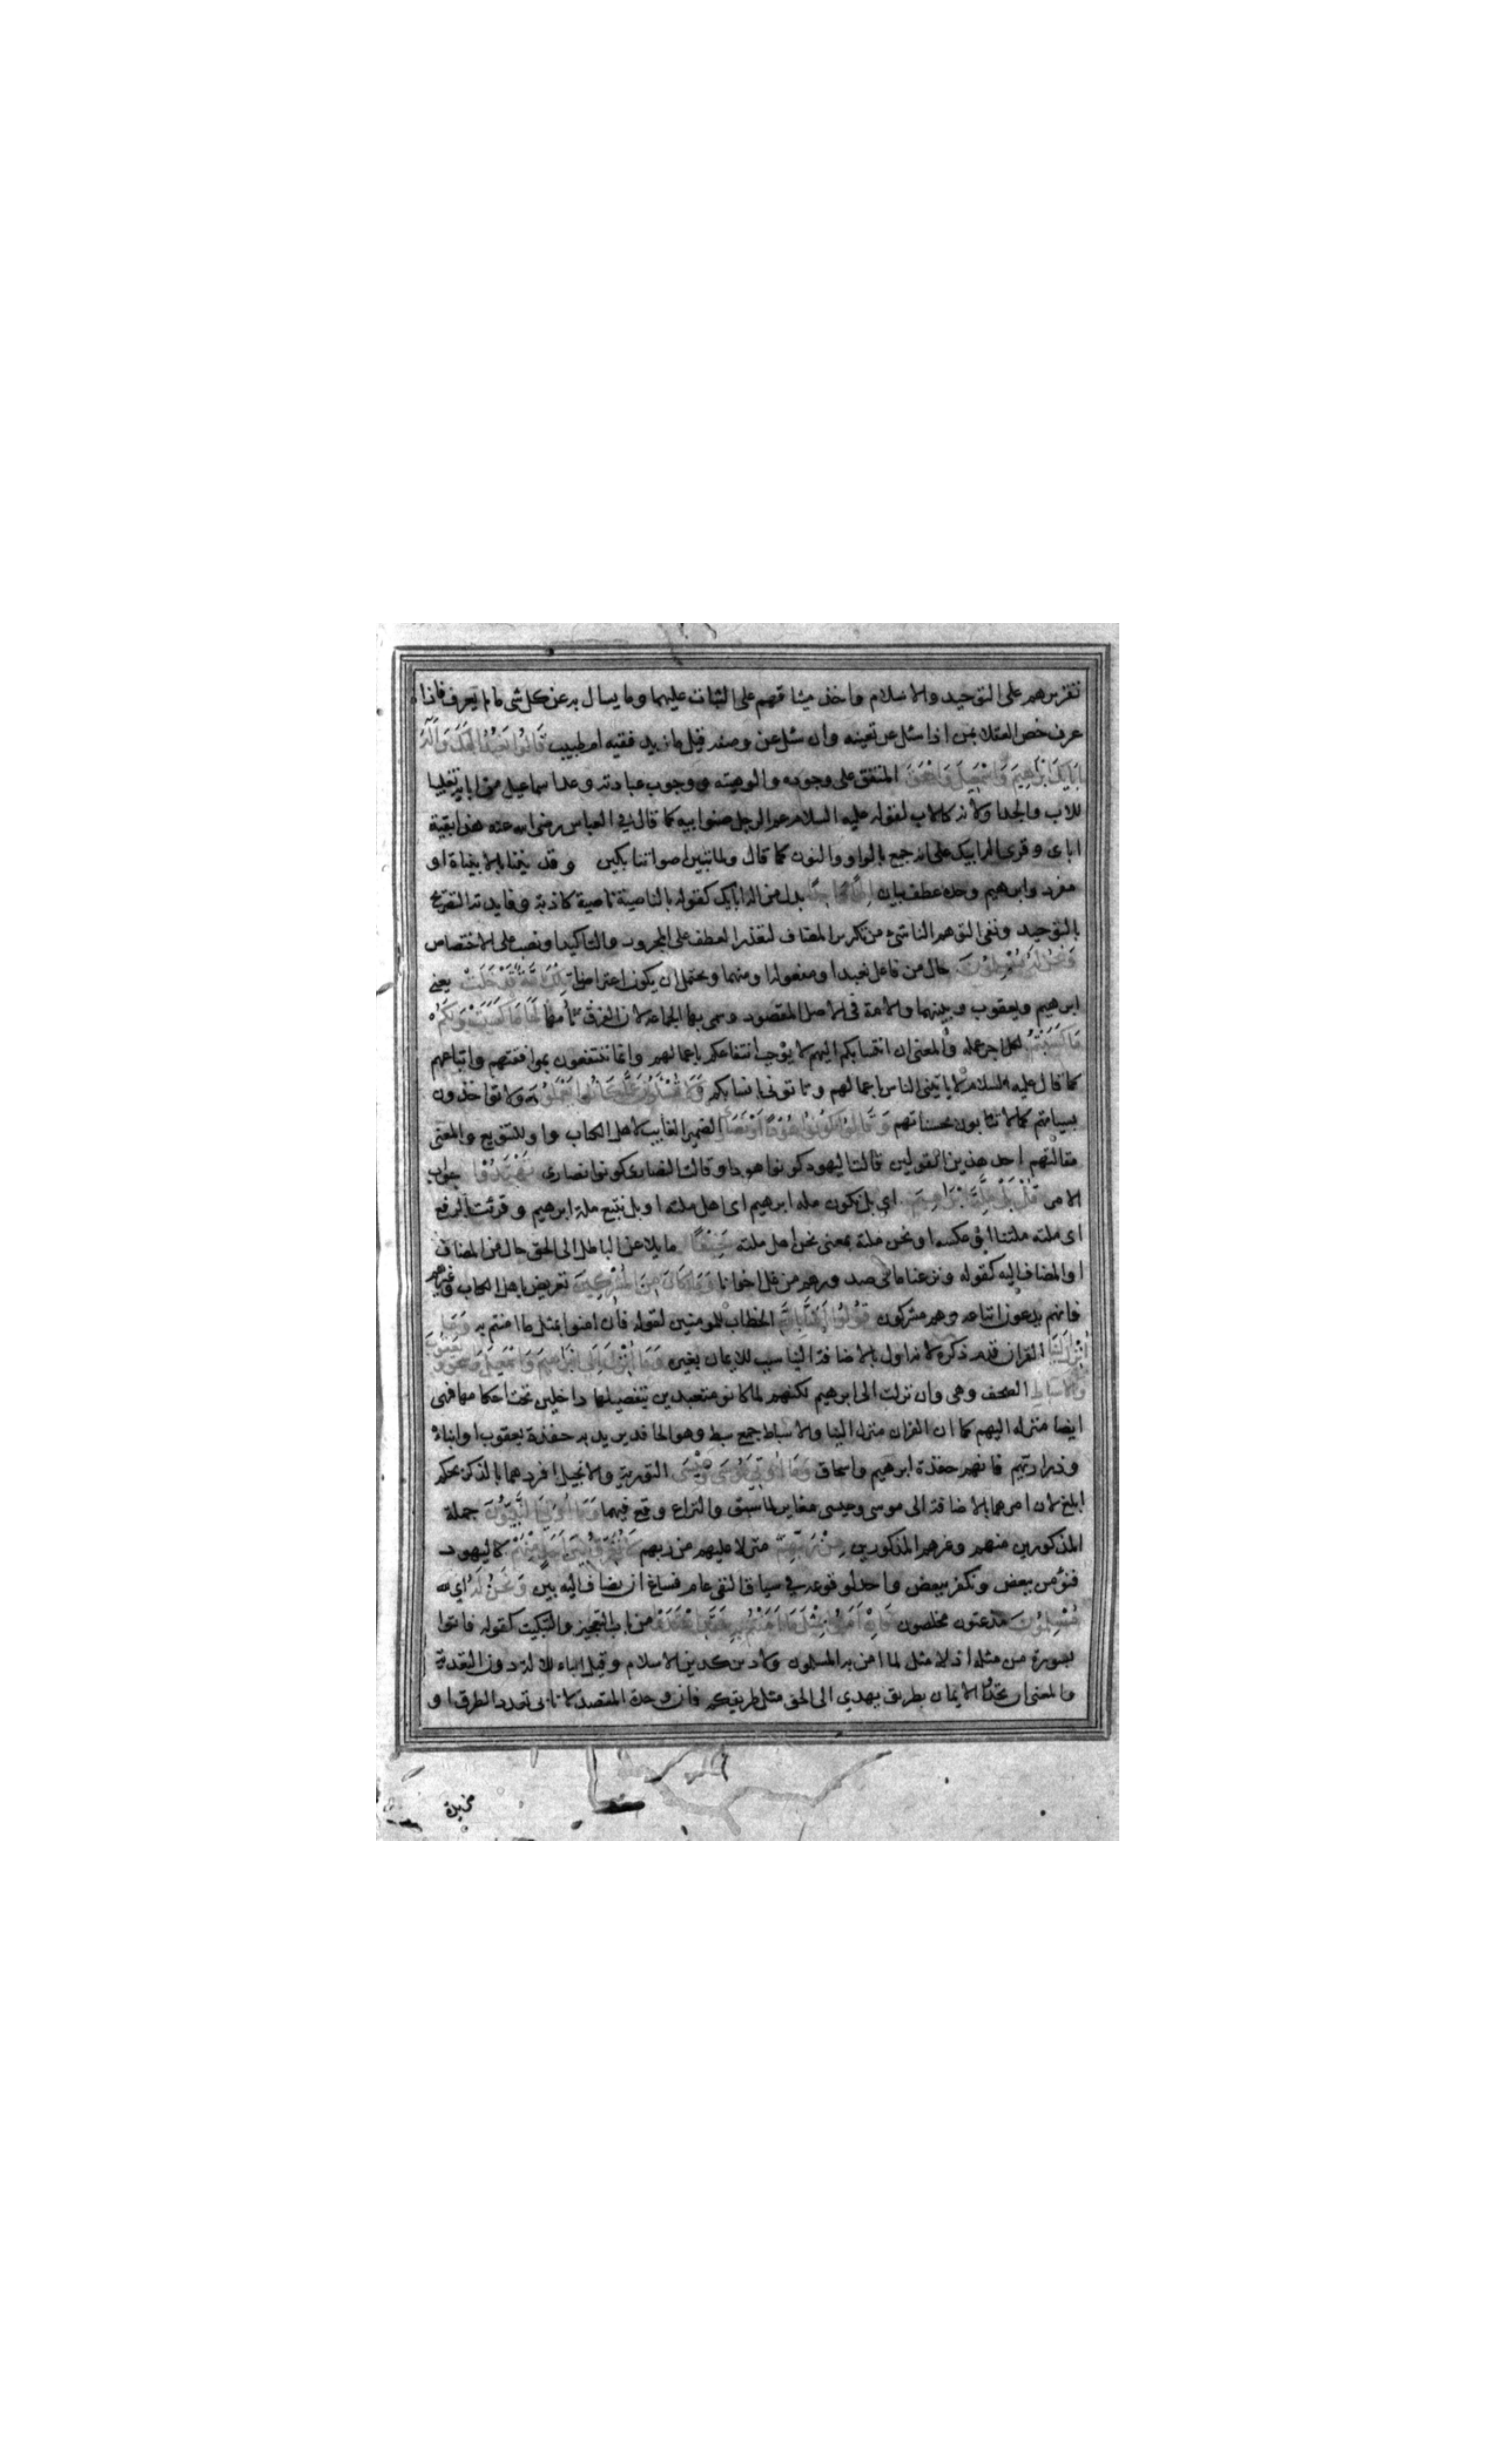 تقريرهم على التوحيد والاسلام واخذ ميثاقهم على الثبات عليهما وما يسال به عن كل شى ما لم يعرف فاذا
عرف خص العقلا بمن اذا سئل عن تعينه وان سئل عن وصفه قيل ما زيد فقيه ام طبيب قَالُوا نَعْبُدُ اِلٰهَكَ وَاِلٰهَ
اٰبَائِكَ اِبْرَاهِيمَ وَاِسْمٰعِيلَ وَاِسْحٰقَ المتفق على وجوده والوهيته ووجوب عبادته وعد اسماعيل من ابايه تغليبا
للاب والجد او لانه كالاب لقوله عليه السلام عم الرجل صنو ابيه كما قال في العباس رضى الله عنه هذا بقية
اباى وقرى اله ابيك على انه جمع بالواو والنون كما قال ولما تبين اصواتنا بكين وقد يننا بالابينا او
مفرد وابرهيم وحده عطف بيان اِلٰهًا وَاحِدًا بدل من اله ابايك كقوله بالناصية ناصية كاذبة وفايدته التصريح
بالتوحيد ونفى التوهم الناشئ من تكرير المضاف لتعذر العطف على المجرور والتاكيد او نصب على الاختصاص
وَنَحْنُ لَهُ مُسْلِمُونَ حال من فاعل نعبد او مفعوله او منهما ويحتمل ان يكون اعتراضا تِلْكَ اُمَّةٌ قَدْ خَلَتْ يعنى
ابرهيم ويعقوب وبينهما والامة فى الاصل المقصود وسمى بها الجماعة لان الفرق تأمها لَهَا مَا كَسَبَتْ وَلَكُمْ
مَا كَسَبْتُمْ لكل اجر عمله والمعنى ان انتسابكم اليهم لا يوجب انتفاعكم باعمالهم وانما تنتفعون بموافقتهم واتباعهم
كما قال عليه السلام لا ياتينى الناس باعمالهم وتاتونى بانسابكم وَلَا تُسْئَلُونَ عَمَّا كَانُوا يَعْمَلُونَ ولا تواخذون
بسياتهم كما لا تثابون بحسناتهم وَقَالُوا كُونُوا هُودًا اَوْ نَصَارَى الضمير الغايب لاهل الكتاب واو للتنويع والمعنى
مقالتهم احد هذين القولين قالت اليهود كونوا هودا وقالت النصارى كونوا نصارى تَهْتَدُوا جواب
الامر قُلْ بَلْ مِلَّةَ اِبْرَاهِيمَ اى بل نكون ملة ابرهيم اى اهل ملته او بل نتبع ملة ابرهيم وقرئت بالرفع
اى ملته ملتنا او عكسه او نحن ملته بمعنى نحن اهل ملته حَنِيفًا مايلا عن الباطل الى الحق حال من المضاف
او المضاف اليه كقوله ونزعنا ما فى صدورهم من غل اخوانا وَمَا كَانَ مِنَ الْمُشْرِكِينَ تعريض باهل الكتاب وغيرهم
فانهم يدعون اتباعه وهم مشركون قُولُوا اٰمَنَّا بِاللّٰهِ الخطاب للمومنين لقوله فان امنوا بمثل ما امنتم به وَمَا
اُنْزِلَ اِلَيْنَا القران قدم ذكره لانه اول بالاضافة الينا سبب للايمان بغيره وَمَا اُنْزِلَ اِلَى اِبْرَاهِيمَ وَاِسْمٰعِيلَ وَاِسْحٰقَ وَيَعْقُوبَ
وَالْاَسْبَاطِ الصحف وهى وان نزلت الى ابرهيم لكنهم لما كانو متعبدين بتفصيلها داخلين تحت احكامها فهى
ايضا منزله اليهم كما ان القران منزل الينا والاسباط جمع سبط وهو الحافد يريد به حفدة يعقوب او ابناه
وذراريتهم فانهم حفدة ابرهيم واسحاق وَمَا اُوتِيَ مُوسَى وَعِيسَى التورية والانجيل افردهما بالذكر بحكم
ابلغ لان امرهما بالاضافة الى موسى وعيسى مغاير لما سبق والنزاع وقع فيهما وَمَا اُوتِيَ النَّبِيُّونَ جملة
المذكورين منهم وغيرهم المذكورين مِنْ رَبِّهِمْ منزلا عليهم من ربهم لَا نُفَرِّقُ بَيْنَ اَحَدٍ مِنْهُمْ كاليهود
فنؤمن ببعض ونكفر ببعض واحد لوقوعه في سياق النفى عام فساغ ان يضاف اليه بين وَنَحْنُ لَهُ اى لله
مُسْلِمُونَ مذعنون مخلصون فَاِنْ اٰمَنُوا بِمِثْلِ مَا اٰمَنْتُمْ بِهِ فَقَدِ اهْتَدَوْا من باب التعجيز والتبكيت كقوله فاتوا
بسورة من مثله اذ لا مثل لما امن به المسلمون ولا دين كدين الاسلام وقيل الباء للالة دون التعدية
والمعنى ان تحروا الايمان بطريق يهدي الى الحق مثل طريقكم فان وحدة المقصد لا تابى تعدد الطرق او
مزيدة